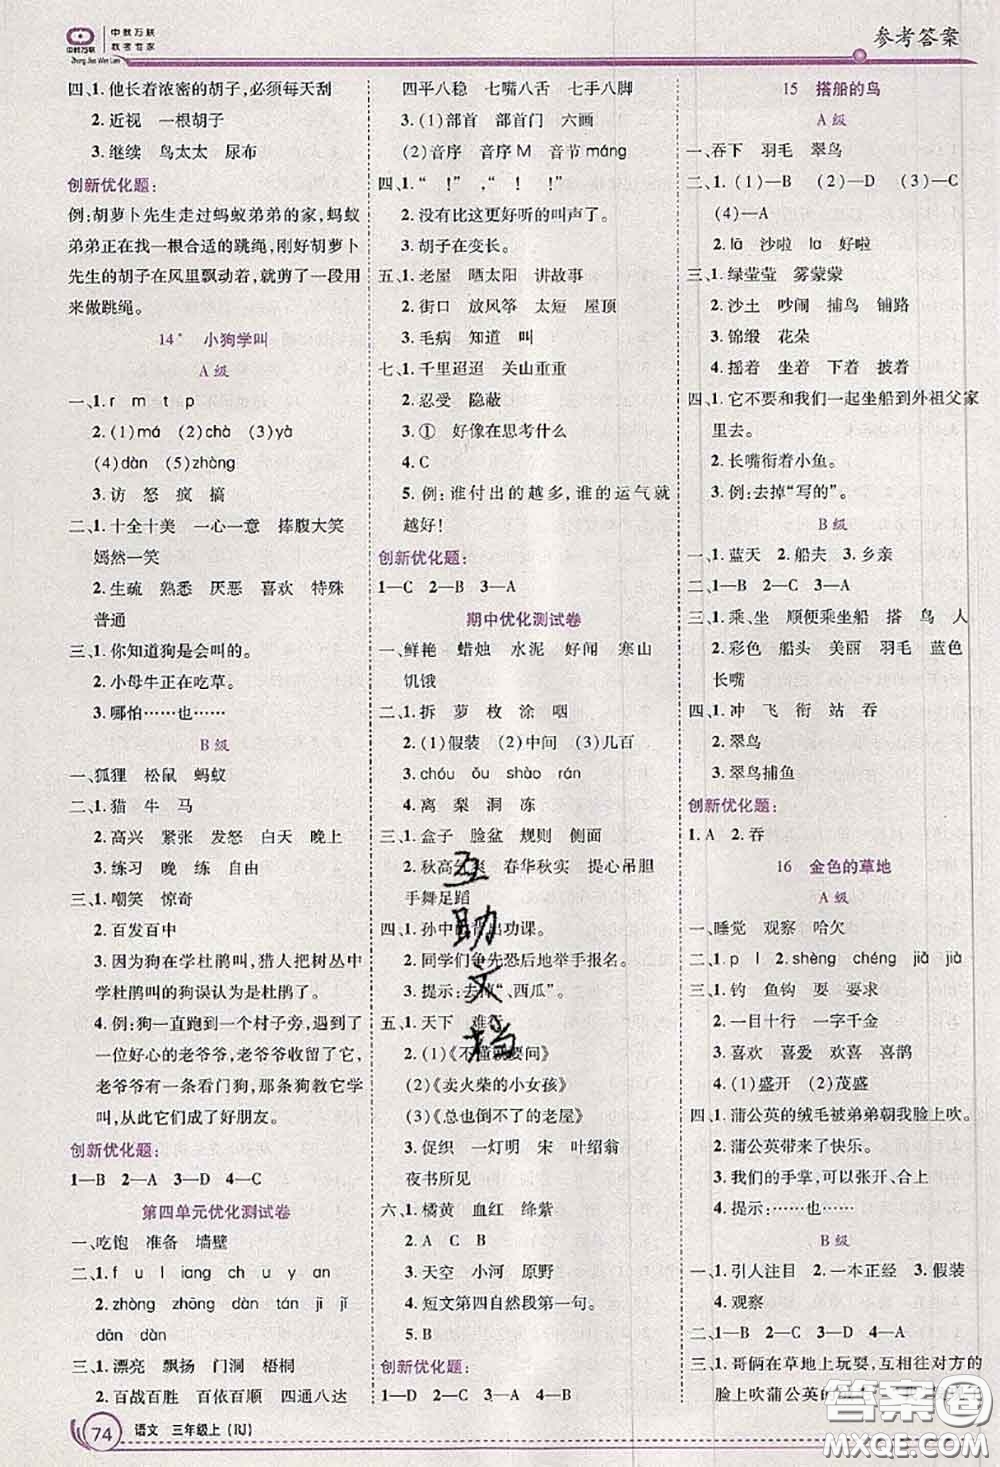 中教万联
中教万联
教考专家
Zhong Jiao Wan Lian
参考答案
四、1. 他长着浓密的胡子,必须每天刮
2. 近视 一根胡子
3. 继续 鸟太太 尿布
创新优化题:
例:胡萝卜先生走过蚂蚁弟弟的家,蚂蚁
弟弟正在找一根合适的跳绳,刚好胡萝卜
先生的胡子在风里飘动着,就剪了一段用
来做跳绳。
14* 小狗学叫
A 级
一、1. r m t p
2. (1)má (2)chà (3)yà
(4)dàn (5)zhòng
3. 访 怒 疯 搞
二、1. 十全十美 一心一意 捧腹大笑
嫣然一笑
2. 生疏 熟悉 厌恶 喜欢 特殊
普通
三、1. 你知道狗是会叫的。
2. 小母牛正在吃草。
3. 哪怕……也……
B 级
一、狐狸 松鼠 蚂蚁
二、1. 猫 牛 马
2. 高兴 紧张 发怒 白天 晚上
3. 练习 晚 练 自由
三、1. 嘲笑 惊奇
2. 百发百中
3. 因为狗在学杜鹃叫,猎人把树丛中
学杜鹃叫的狗误认为是杜鹃了。
4. 例:狗一直跑到一个村子旁,遇到了
一位好心的老爷爷,老爷爷收留了它。
老爷爷有一条看门狗,狗教它学狗
叫,从此它们成了好朋友。
创新优化题:
1—B 2—A 3—D 4—C
第四单元优化测试卷
一、吃饱 准备 墙壁
二、1. f u l iang ch u y an
2. zhòng zhōng dàn tán jì jǐ
dān dàn
三、1. 漂亮 飘扬 门洞 梧桐
2. 百战百胜 百依百顺 四通八达
四平八稳 七嘴八舌 七手八脚
3. (1)部首 部首门 六画
(2)音序 音序M 音节máng
四、1. “ !” ,“ !”
2. 没有比这更好听的叫声了。
3. 胡子在变长。
五、1. 老屋 晒太阳 讲故事
2. 街口 放风筝 太短 屋顶
3. 毛病 知道 叫
七、1. 千里迢迢 关山重重
2. 忍受 隐蔽
3. ① 好像在思考什么
4. C
5. 例:谁付出的越多,谁的运气就
越好!
创新优化题:
1—C 2—B 3—A
期中优化测试卷
一、鲜艳 蜡烛 水泥 好闻 寒山
饥饿
二、1. 拆 萝 枚 涂 咽
2. (1)假装 (2)中间 (3)几百
3. chóu ǒu shào rán
4. 离 梨 洞 冻
三、1. 盒子 脸盆 规则 侧面
2. 秋高气爽 春华秋实 提心吊胆
手舞足蹈
四、1. 孙中山背出功课。
2. 同学们争先恐后地举手报名。
3. 提示:去掉“、西瓜”。
五、1. 天下 难
2. (1)《不懂就要问》
(2)《卖火柴的小女孩》
(3)《总也倒不了的老屋》
3. 促织 一灯明 宋 叶绍翁
夜书所见
六、1. 橘黄 血红 绛紫
2. A C B
3. 天空 小河 原野
4. 短文第四自然段第一句。
5. B
创新优化题:
1—D 2—C 3—B 4—A
15 搭船的鸟
A 级
一、吞下 羽毛 翠鸟
二、1. (1)—B (2)—D (3)—C
(4)—A
2. lā 沙啦 la 好啦
三、1. 绿莹莹 雾蒙蒙
2. 沙土 吵闹 捕鸟 铺路
3. 锦缎 花朵
4. 摇着 坐着 下着 披着
四、1. 它不要和我们一起坐船到外祖父家
里去。
2. 长嘴衔着小鱼。
3. 例:去掉“写的”。
B 级
一、1. 蓝天 2. 船夫 3. 乡亲
二、1—B 2—C 3—A
三、1. 乘、坐 顺便乘坐船 搭 鸟 人
2. 彩色 船头 美丽 羽毛 蓝色
长嘴
四、1. 冲 飞 衔 站 吞
2. 翠鸟
3. 翠鸟捕鱼
创新优化题:
1. A 2. 吞
16 金色的草地
A 级
一、睡觉 观察 哈欠
二、1. p l 2. shèng chéng jiǎ jià
三、1. 钓 鱼钩 耍 要求
2. 一目十行 一字千金
3. 喜欢 喜爱 欢喜 喜鹊
4. (1)盛开 (2)茂盛
四、1. 蒲公英的绒毛被弟弟朝我脸上吹。
2. 蒲公英带来了快乐。
3. 我们的手掌,可以张开、合上。
4. 提示:……也……
B 级
一、1. 引人注目 2. 一本正经 3. 假装
4. 观察
二、1—B 2—C 3—D 4—A
三、1. 哥俩在草地上玩耍,互相往对方的
脸上吹蒲公英的
互助文档
答案圈
MXQE.COM
74 语文 三年级上 (RJ)